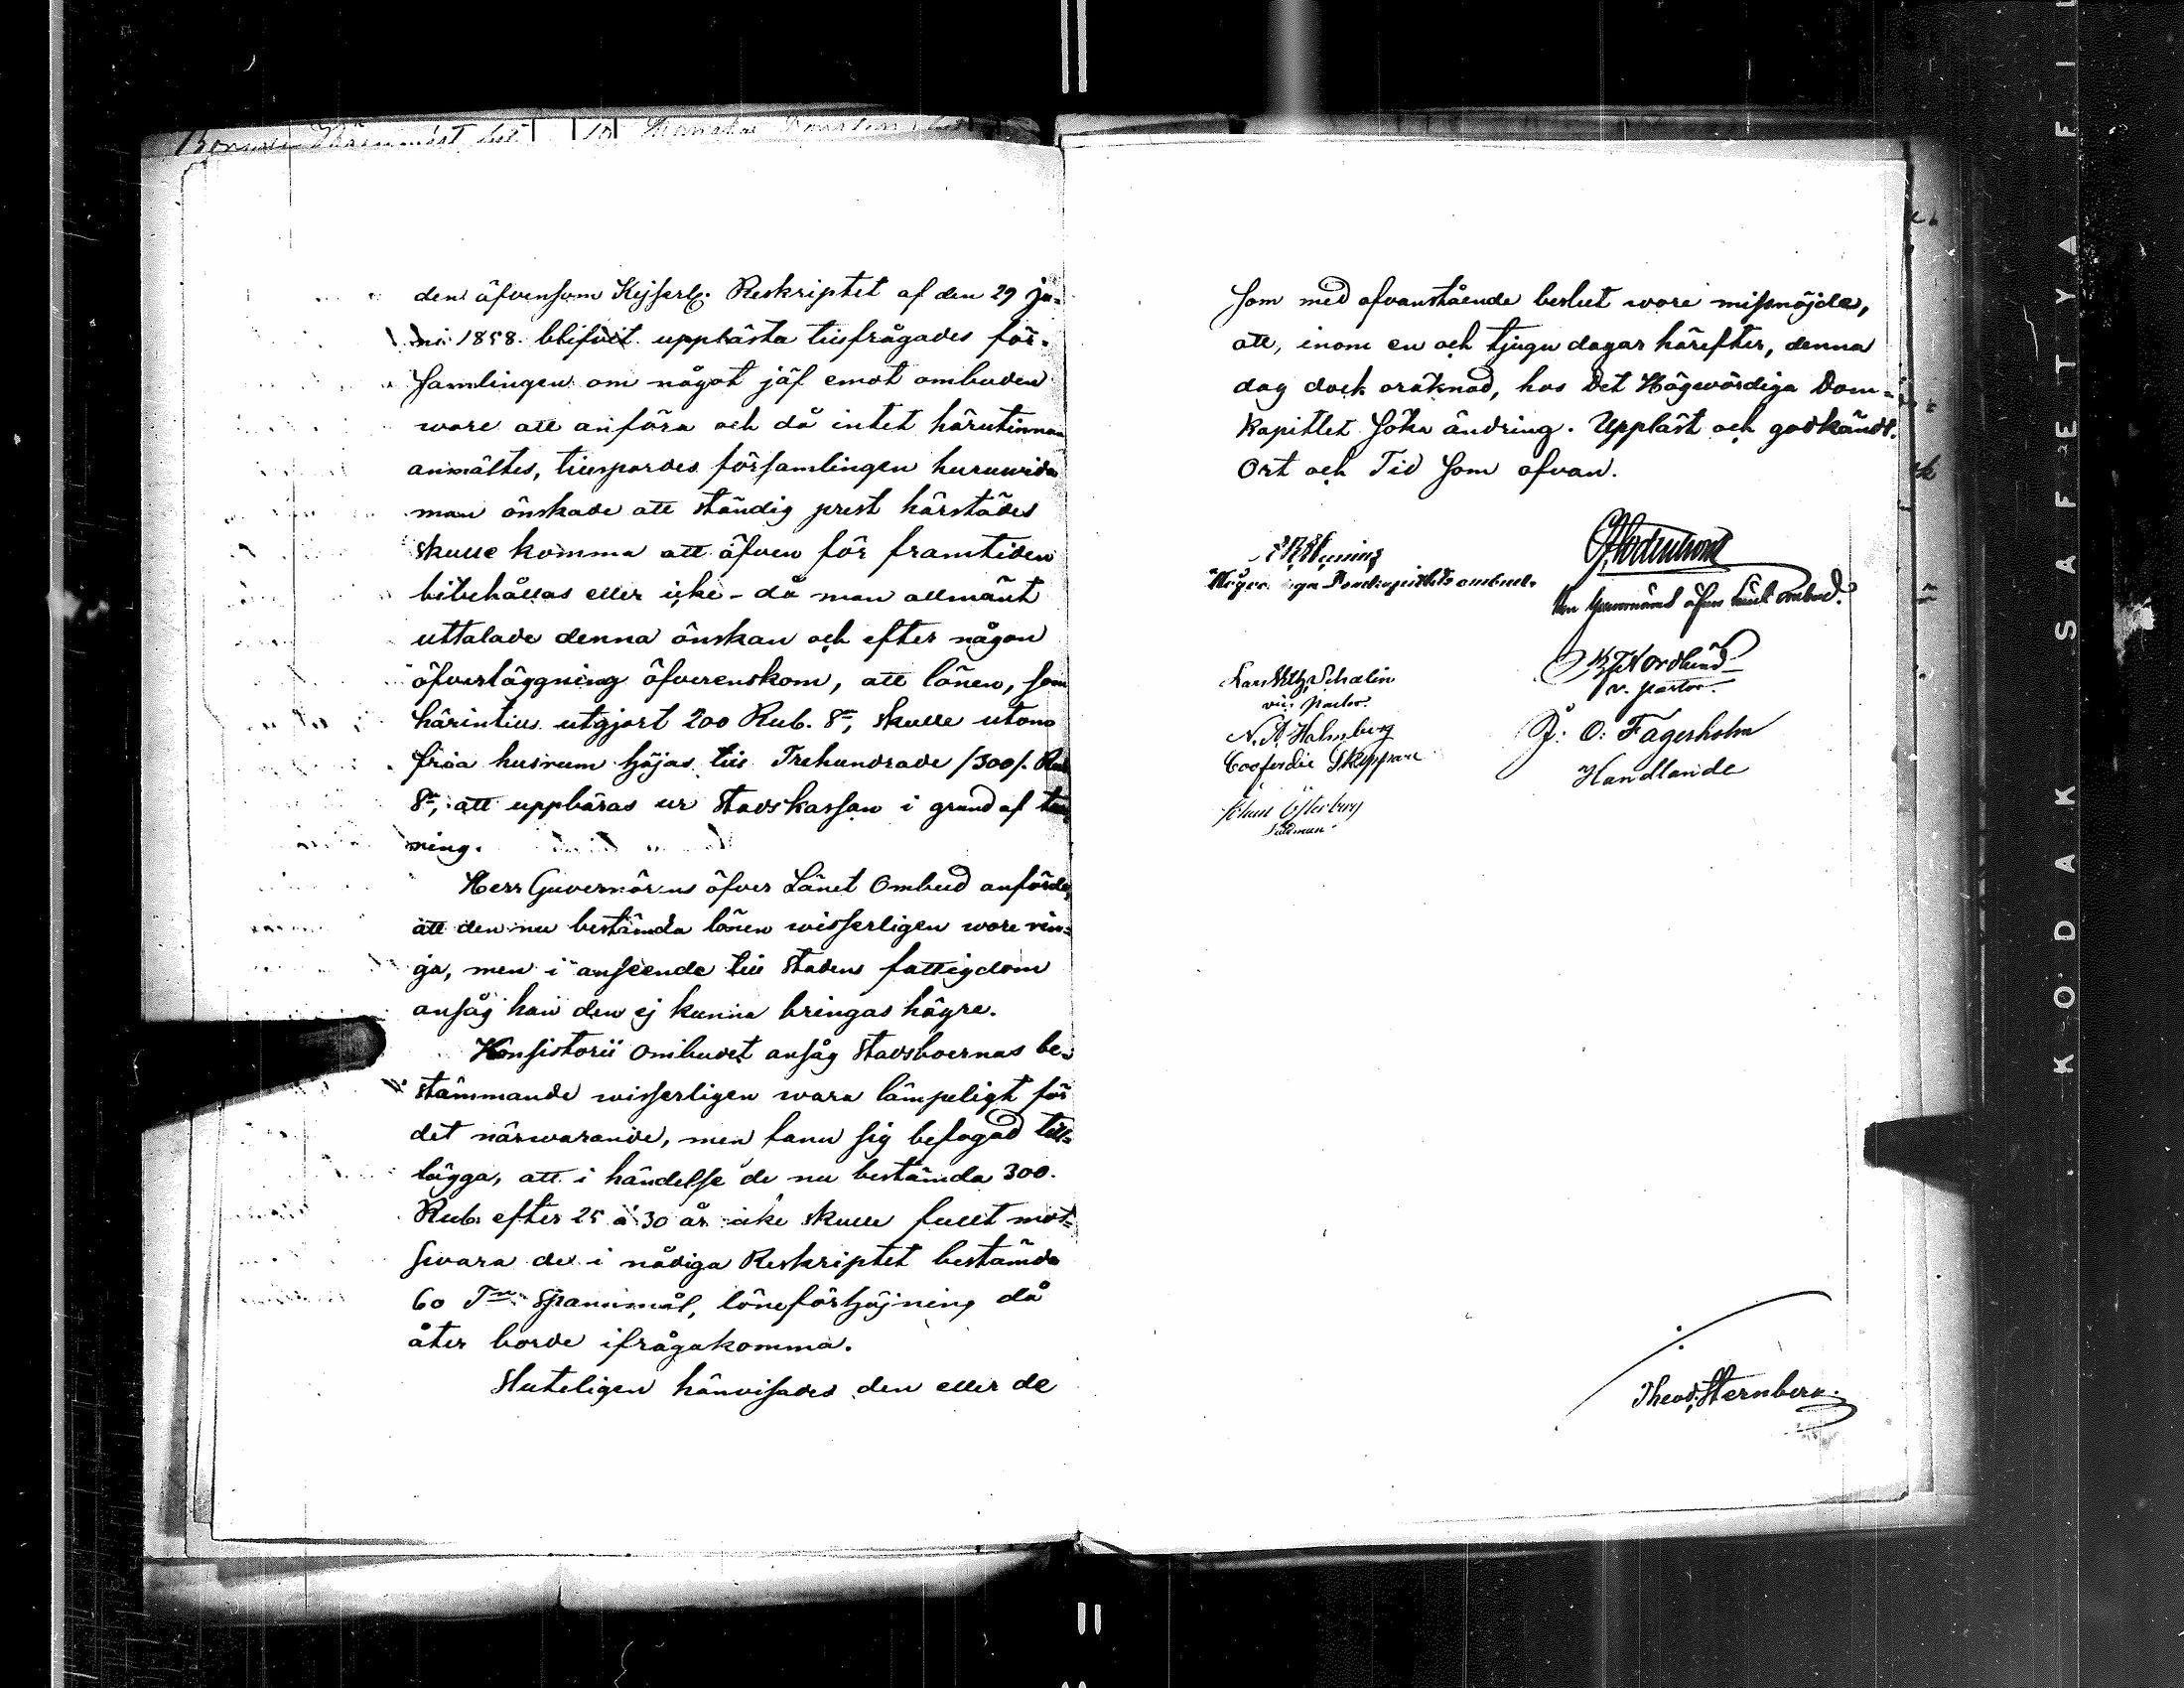 den äfvensom Kejserl. Reskriptet af den 29 Ju-
ni 1858. blifvit upplästa tillfrågades för-
samlingen om något jäf emot ombuden
wore att anföra och då intet härutinnan
anmältes, tillspordes församlingen huruwida
man önskade att ständig prest härstädes
skulle komma att äfven för framtiden
bibehållas eller icke - då man allmänt
uttalade denna önskan och efter någon
öfverläggning öfverenskom, att lönen, som
härintills utgjort 200 Rub. Sr, skulle utom
fria husrum höjas till Trehundrade /300/. Rub
Sr, att uppbäras ur Stadskassan i grund af
ning.
Herr Guvernörens öfver Länet Ombud anförde,
att den nu bestämda lönen wisserligen wore rin-
ga, men i anseende till Stadens fattigdom
ansåg han den ej kunna bringas högre.
Konsistorii Ombudet ansåg Stadsboernas be-
stämmande wisserligen wara lämpeligt för
det närwarande, men fann sig befogad till-
lägga, att i händelse de nu bestämda 300.
Rub. efter 25 à 30 år icke skulle fullt mot-
swara de i nådiga Reskriptet bestämda
60 Tnr Spannmål, löneförhöjning då
åter borde ifrågakomma.
Sluteligen hänvisades den eller de
som med ofvanstående beslut wore missnöjde,
att, inom en och tjugu dagar härefter, denna
dag dock oräknad, hos Det Högwördiga Dom-
kapitlet söka ändring. Uppläst och godkändt.
Ort och Tid som ofvan.
Domkapitlets ombud.
öfver Länet ombud.
Lars Schalin
vice Pastor.
Nordlund
v. pastor.
N. A. Holmberg
Cooferdie Skeppare
J. O. Fagerholm
Handlande
Johan Österberg
Theod. Sternberg.
KODAK SAFETY FIL